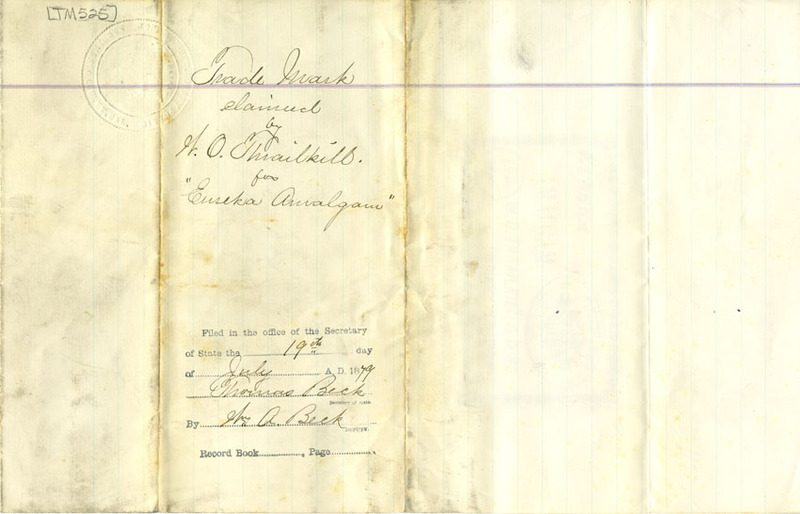 [TM525]
Trade Mark
claimed
by
W. O. Thrailkill.
for
"Eureka Amalgam"
Filed in the office of the Secretary
of State the 19th day
of July A. D. 1879
Thomas Beck
Secretary of State.
By Wm A. Beck
Deputy.
Record Book , Page .